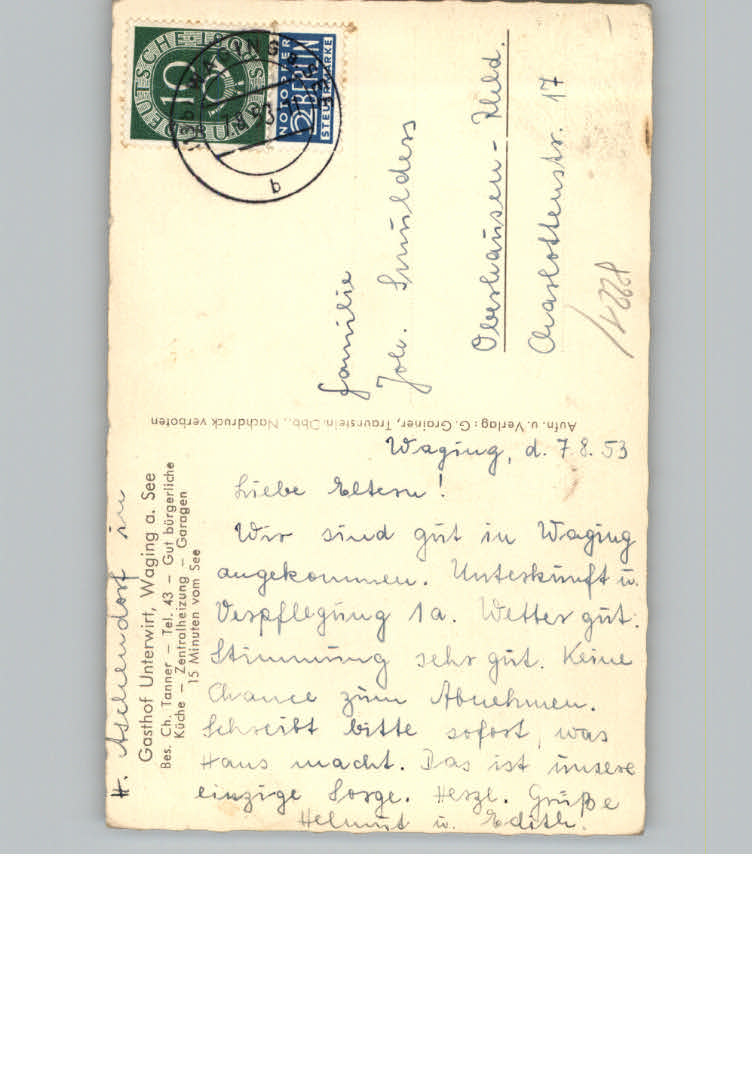 DEUTSCHE BUNDESPOST
10
NOTOPFER
2 BERLIN
STEUERMARKE
WAGING
b
Familie
Joh.
Oberhausen-Rhld.
Charlottenstr. 17
Aufn. u. Verlag: G. Grainer, Traunstein Obb., Nachdruck verboten
H. Aschendorf in
Gasthof Unterwirt, Waging a. See
Bes. Ch. Tanner – Tel. 43 – Gut bürgerliche
Küche – Zentralheizung – Garagen
15 Minuten vom See
Waging, d. 7.8.53
Liebe Eltern!
Wir sind gut in Waging
angekommen. Unterkunft u.
Verpflegung 1a. Wetter gut.
Stimmung sehr gut. Keine
Chance zum Abnehmen.
Schreibt bitte sofort, was
Hans macht. Das ist unsere
einzige Sorge. Herzl. Grüße
Helmut u. Edith.